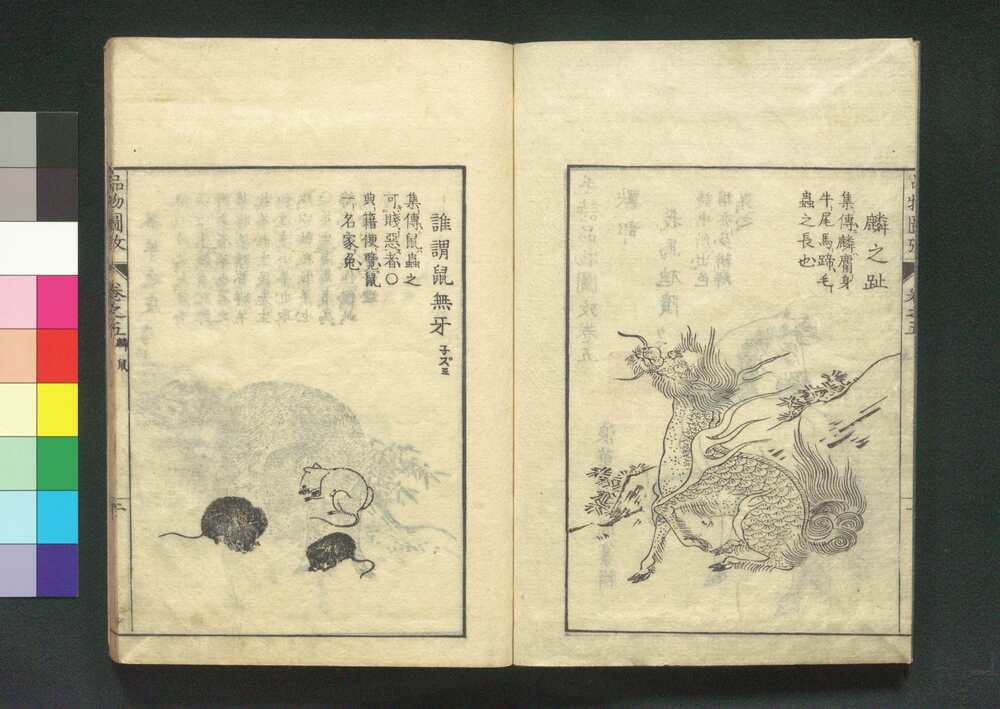 麟之趾
集傳麟麕身
牛尾馬蹄毛
蟲之長也
誰謂鼠無牙 子ズミ
集傳鼠蟲之
可賤惡者〇
典籍便覽鼠
一名家兔
品物圖攷 卷之五 麟 鼠 二